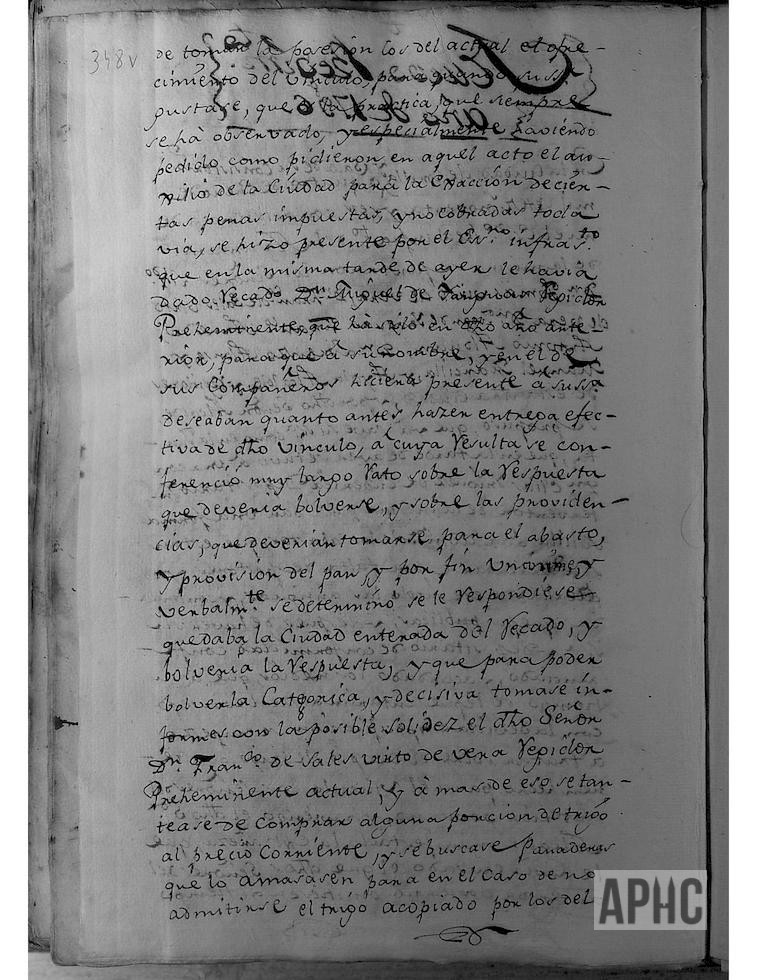 348v
de tomar la posesion los del actual el ofre-
cimiento del vinculo, para quando suss.
gustase, que es la practica, que siempre
se hà observado, y especialmente haviendo
pedido como pidieron en aquel acto el au-
xilio de la Ciudad para la Exaccion de cier-
tas penas impuestas, y no cobradas toda
via, se hizo presente por el Es.no infras.to
que en la misma tarde de ayer le havia
dado Recado Dn Miguel de Rexidor
Preheminente que ha sido en dho año ante-
rior, para que à su nombre, y en el de
sus Compañeros hiciera presente à suss.a
deseaban quanto antes hazer entrega efec-
tiva de dho vinculo, à cuya Resulta se con-
ferenciò muy largo Rato sobre la Respuesta
que deveria bolverse, y sobre las providen-
cias, que deverian tomarse para el abasto,
y provision del pan, y por fin unanime, y
verbalm.te se determinò se le Respondiese
quedaba la Ciudad enterada del Recado, y
bolveria la Respuesta, y que para poder
bolverla Categorica, y decisiva tomase in-
formes con la posible solidez el dho Señor
Dn. Fran.co de Sales Virto de vera Rexidor
Preheminente actual, y à mas de eso se tan-
tease de Comprar alguna porcion de trigo
al precio Corriente, y se buscase Panaderas
que lo amasasen para en el caso de no
admitirse el trigo acopiado por los del
APHC